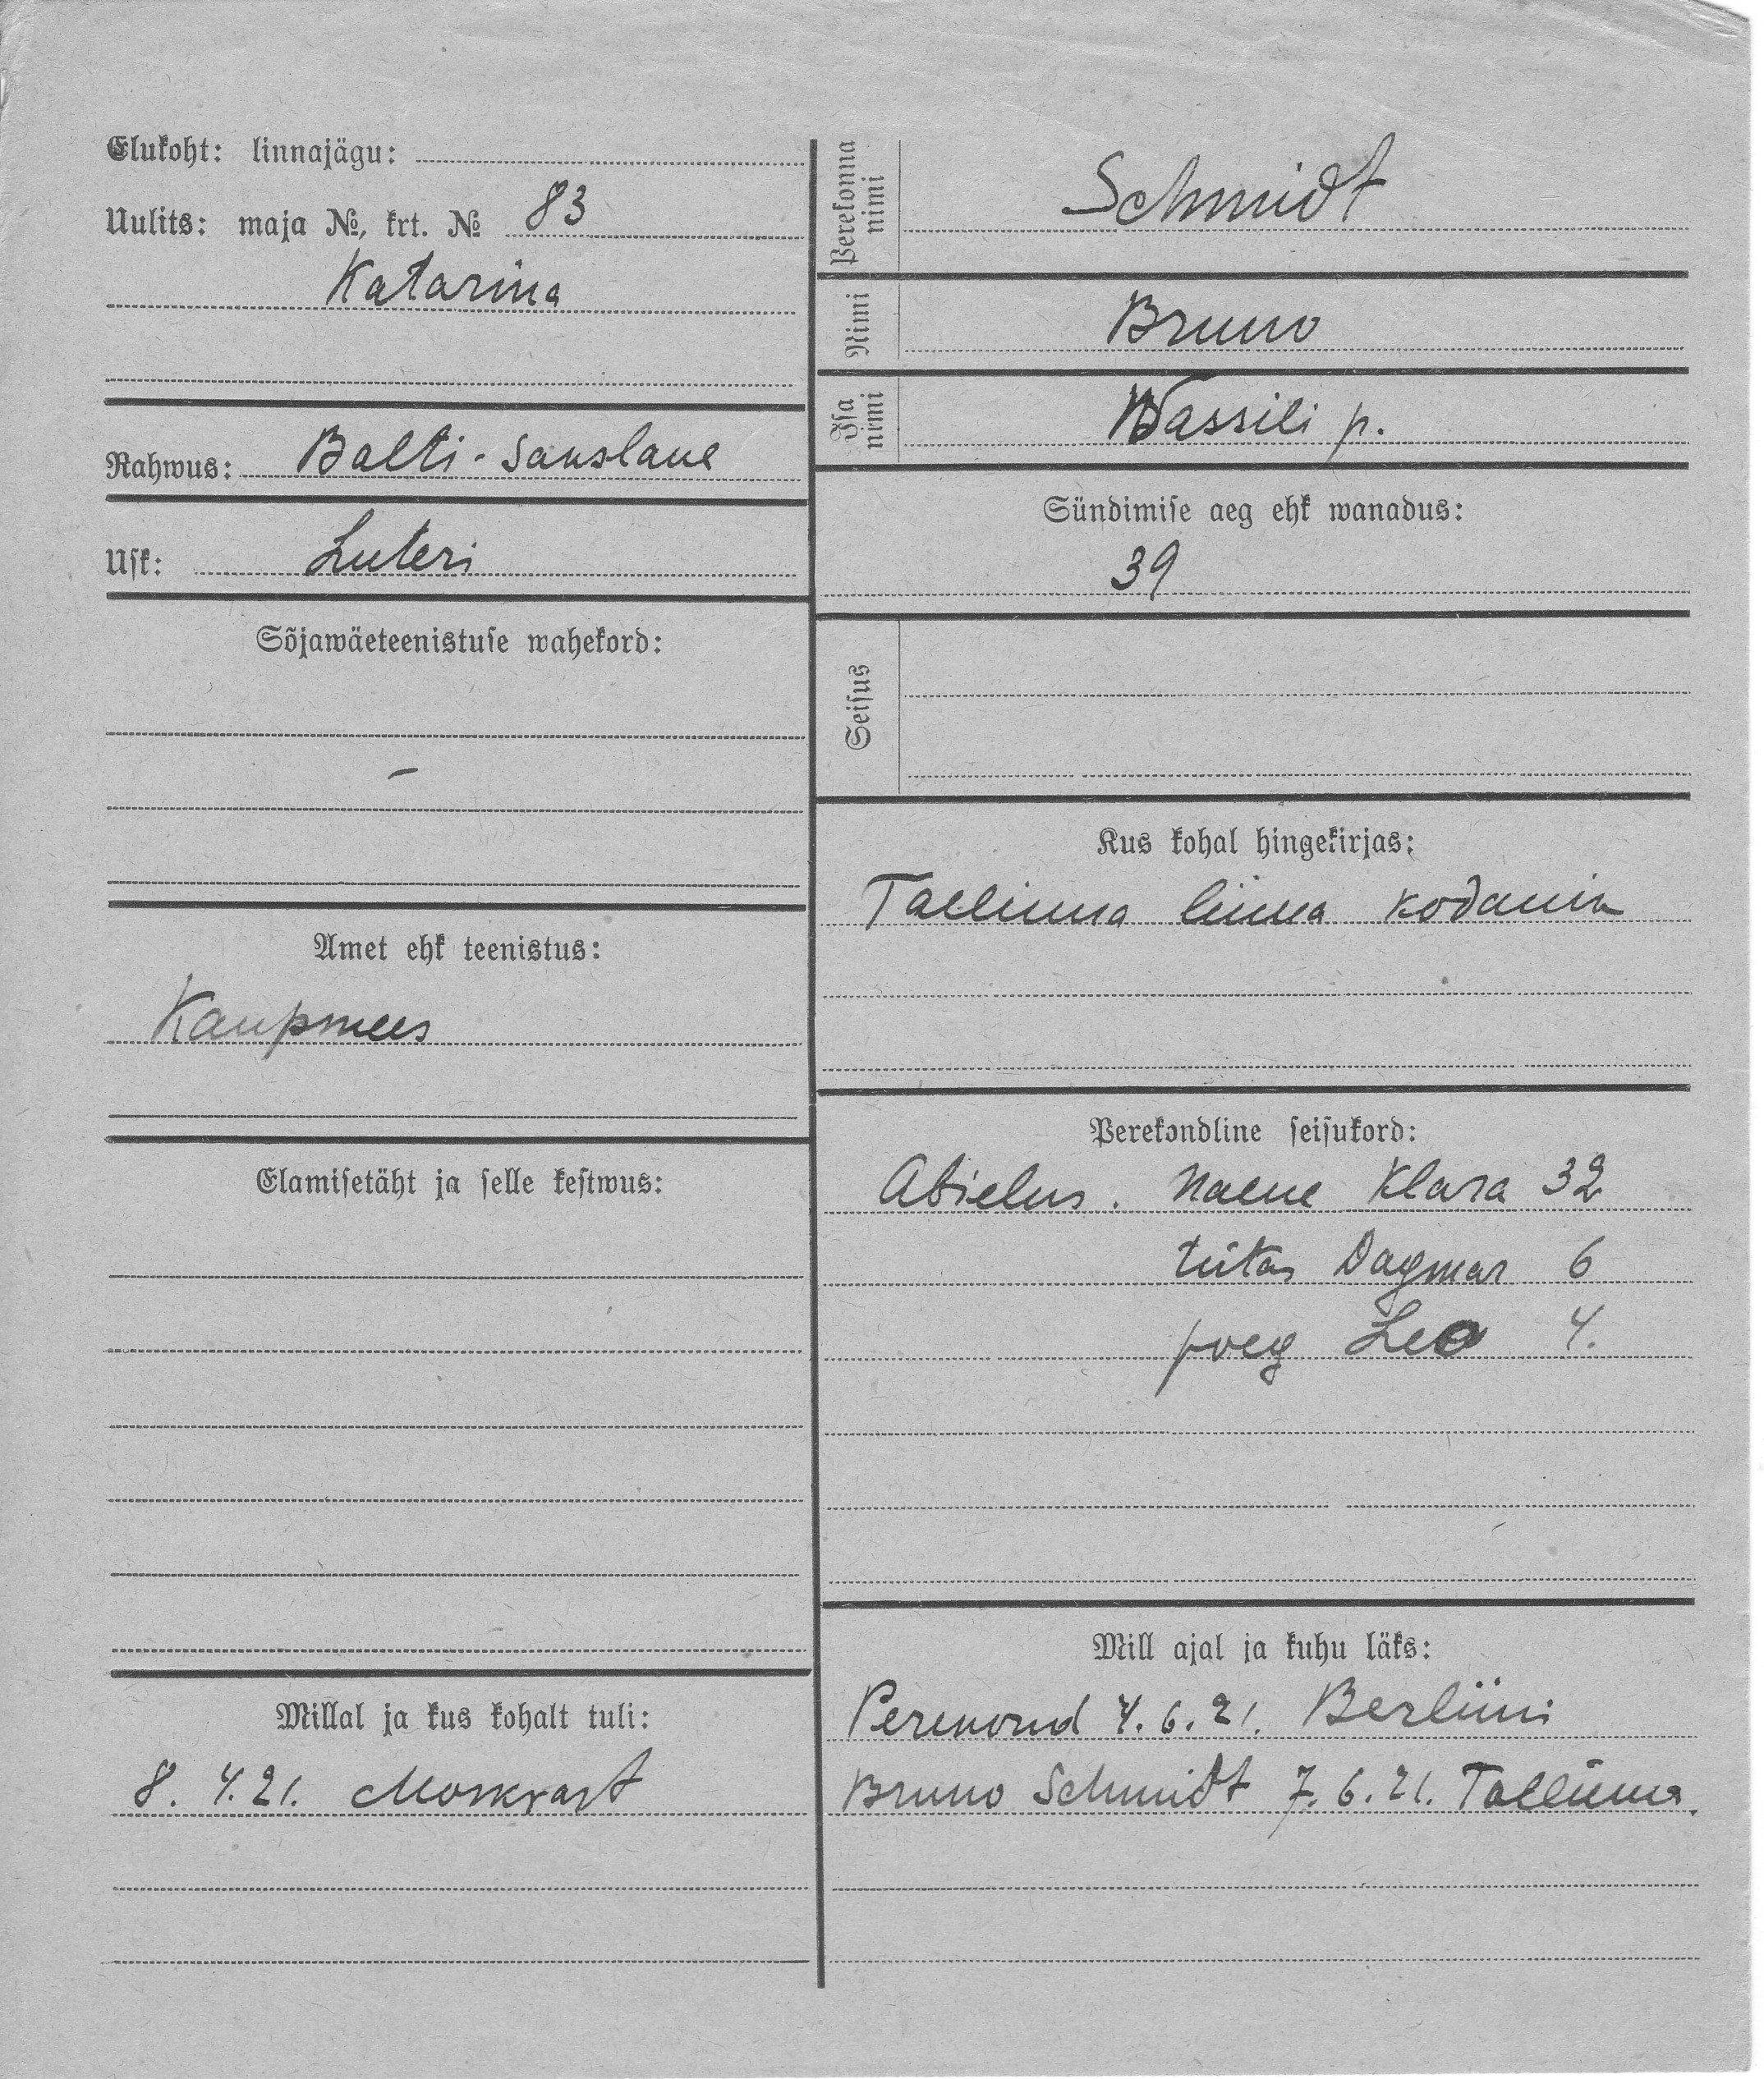 Elukoht: linnajägu:
Uulits: maja №, krt. № 83
Katarina
Rahwus: Balti-Sakslane
Usk: Luteri
Sõjawäeteenistuse wahekord:
–
Amet ehk teenistus:
Kaupmees
Elamisetäht ja selle kestwus:
Millal ja kus kohalt tuli:
8. 4. 21. Moskvast
Perekonna nimi
Schmidt
Nimi
Bruno
Isa nimi
Wassili p.
Sündimise aeg ehk wanadus:
39
Seisus
Kus kohal hingekirjas:
Tallinna linna kodanik
Perekondline seisukord:
Abielus. Naene Klara 32
tütar Dagmar 6
poeg Leo 4.
Mill ajal ja kuhu läks:
Perekond 4. 6. 21. Berliini
Bruno Schmidt 7. 6. 21. Tallinna.